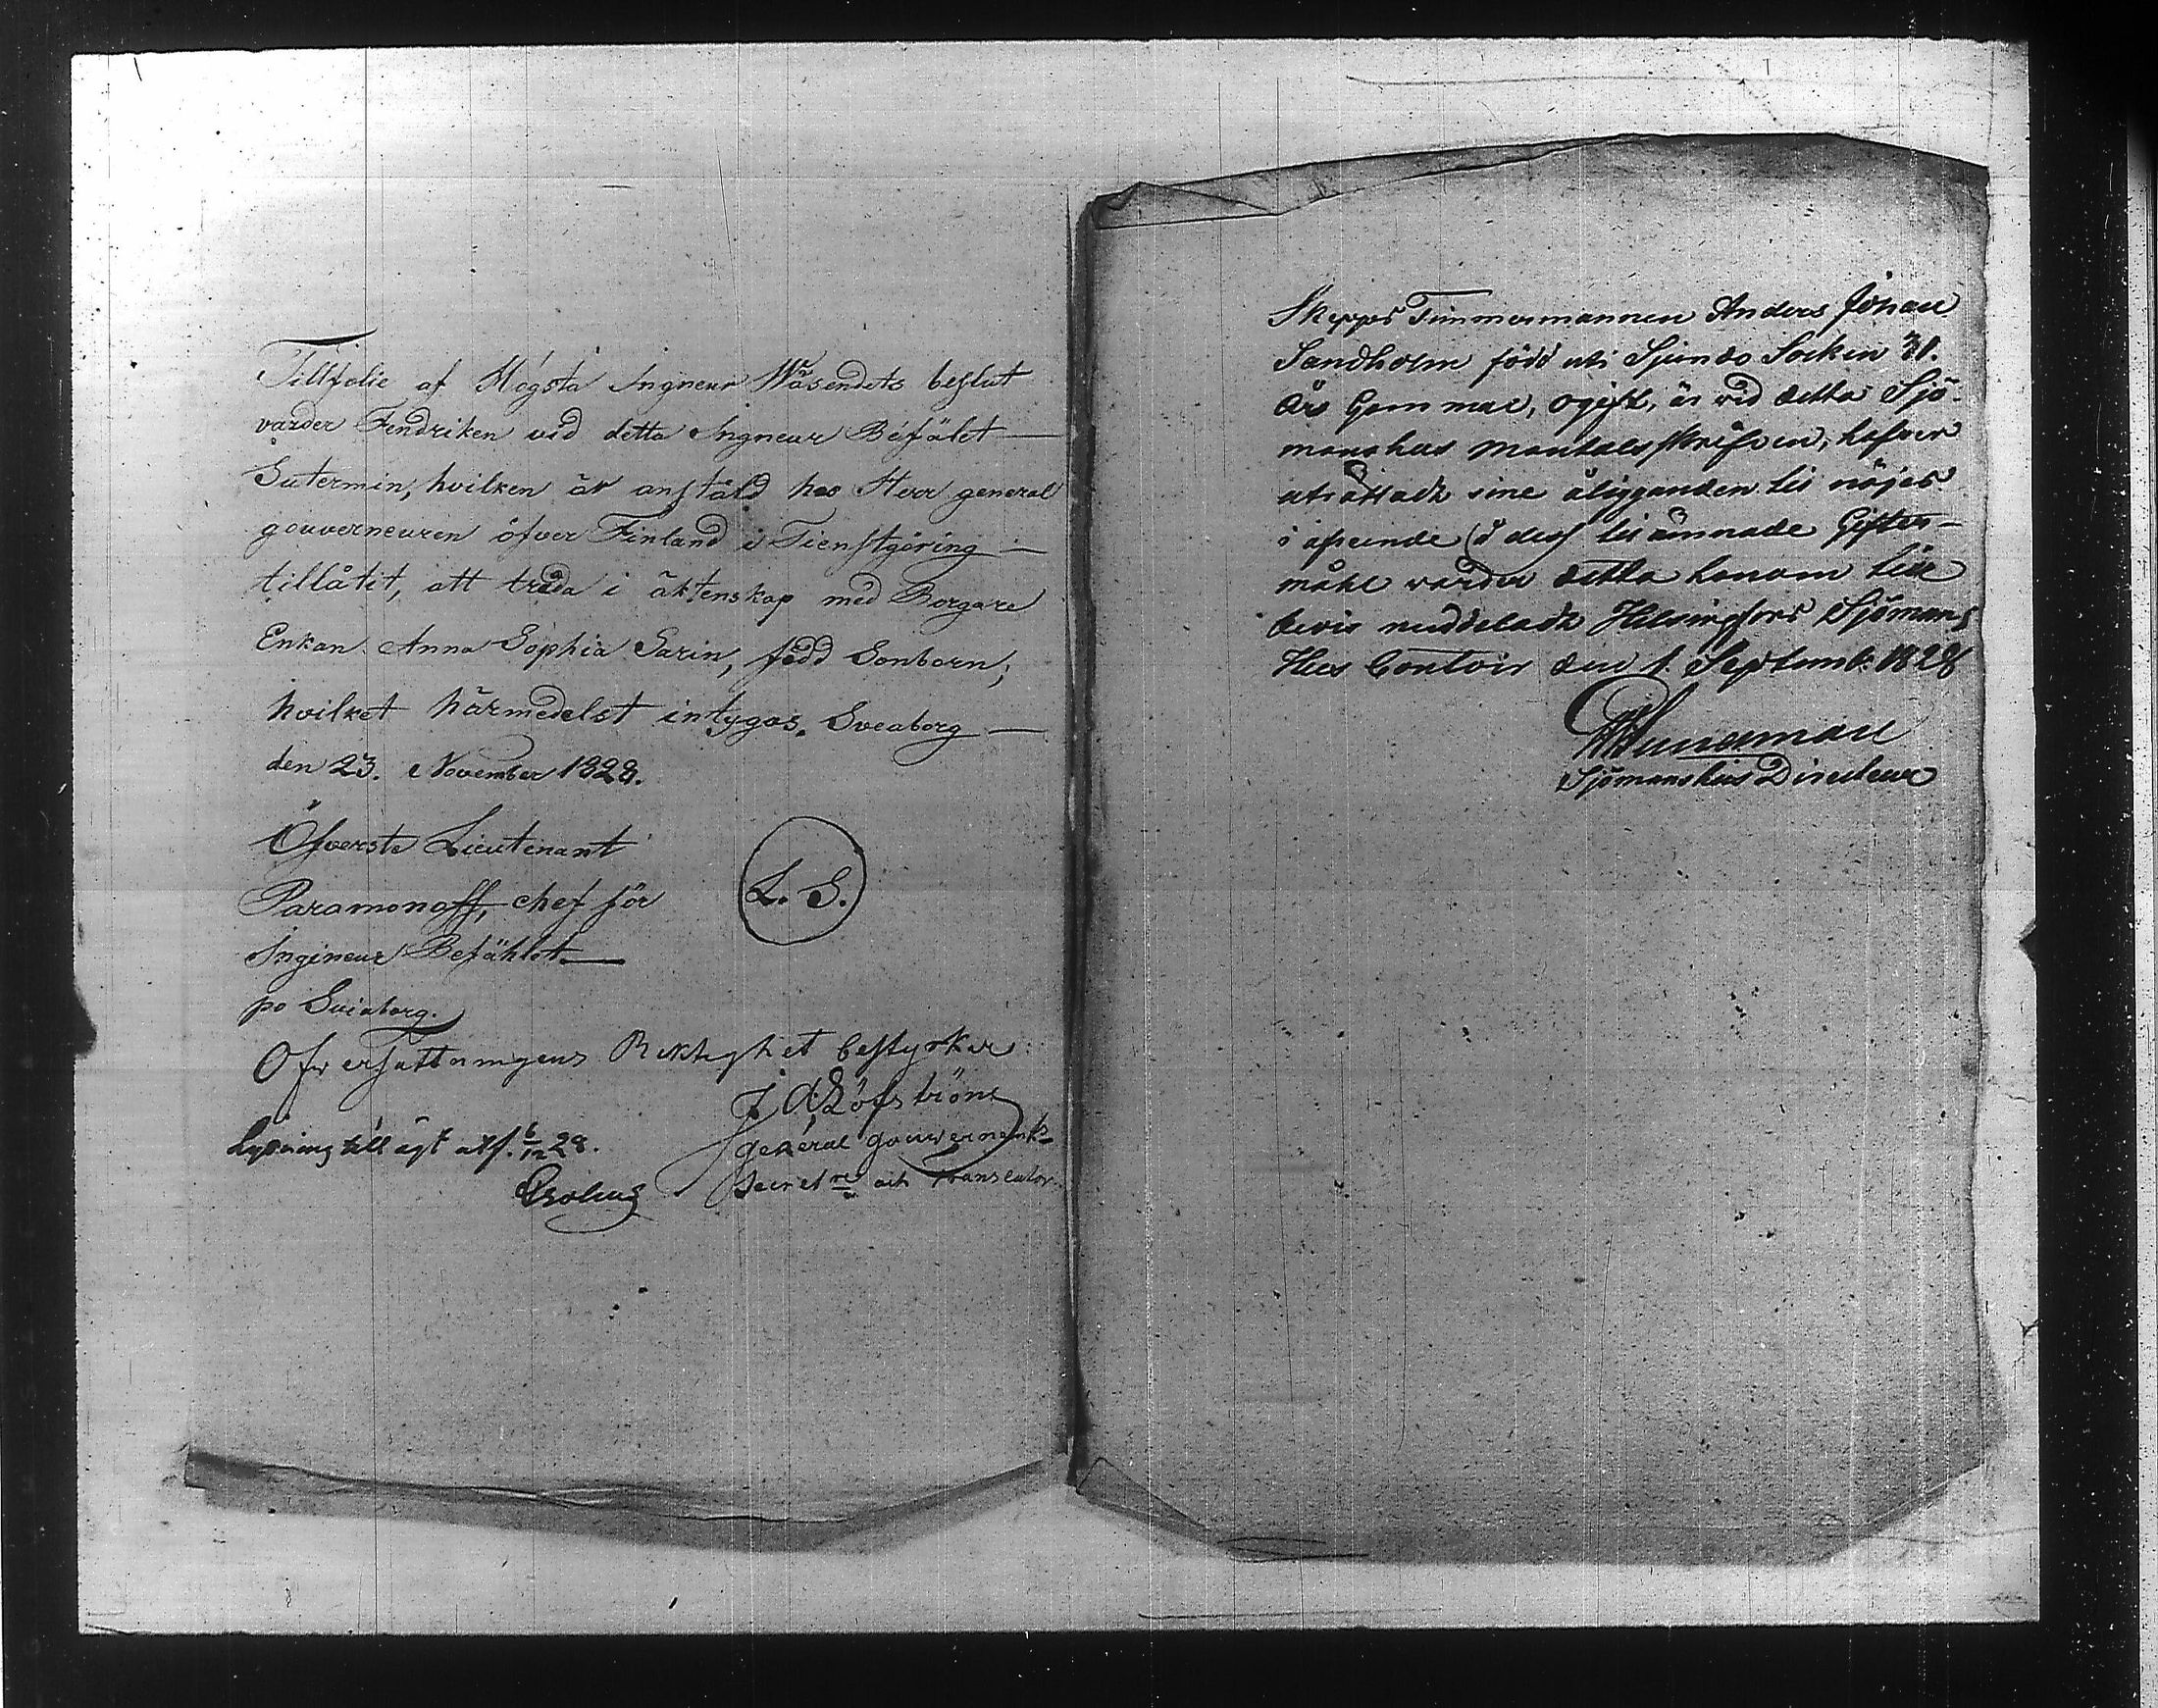 Tillfölie af Högsta Ingneur Wäsendets beslut
varder Fendriken vid detta Ingneur Béfälet —
Sutermin, hvilken är anstäld hos Herr general
gouverneuren öfver Finland i Tienstgöring —
tillåtit, att träda i äktenskap med Borgare
Enkan Anna Sophia Sarin, född Sonborn;
hvilket härmedelst intygas. Sveaborg —
den 23. November 1828.
Öfverste Lieutenant
Paramonoff, chef för
Ingineur Befählet —
po Sviaborg.
L. S.
Öfwersättningens Riktighet bestyrker
J. A. Löfström
General Gouvernemts
Secretre och Translator.
Lysning till ägt. utf. 6/12 28.
Crolius
Skepps Timmermannen Anders Johan
Sandholm född uti Sjundo Socken 31.
års Gammal, ogift, är vid detta Sjö-
manshus Mantalsskrifven, hafver
uträttadt sine åligganden til nöjes
i afseende å dess til ämnade Gifter-
måhl varder detta honom till
bevis meddeladt Helsingfors Sjömans
Hus Contoir den 1. Septemb: 1828
Sjömanshus Directeur